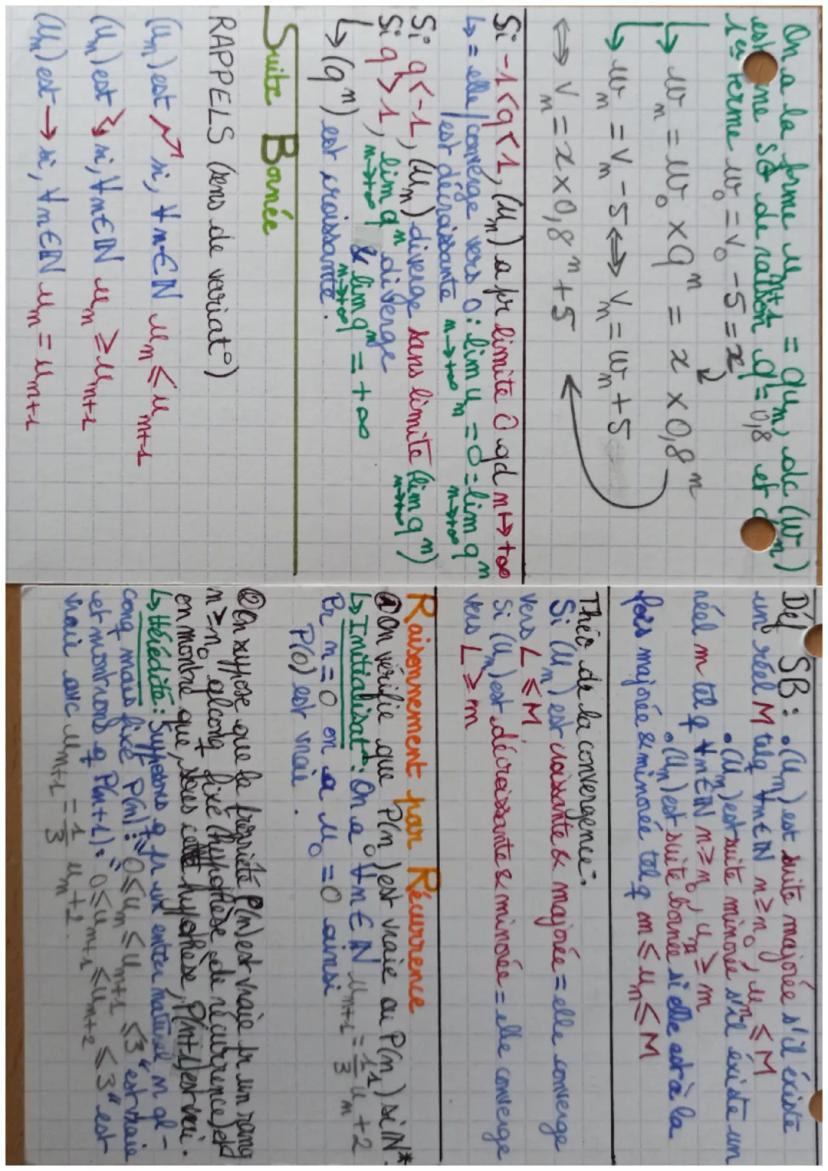 On a la forme u_{n+1} = qu_n, dc (w_n)
est une SG de raison q = 0,8 et d
1er terme w_0 = v_0 - 5 = x
↳ w_n = w_0 × q^n = x × 0,8^n
↳ w_n = v_n - 5 ⇔ v_n = w_n + 5
⇔ v_n = x × 0,8^n + 5
Si -1<q<1, (u_n) a pr limite 0 qd n→+∞
↳ = elle converge vers 0 : lim u_n = 0 = lim q^n
n→+∞ n→+∞
est décroissante
Si q<-1, (u_n) diverge sans limite (lim q^n)
n→+∞
Si q>1, lim q^n diverge & lim q^n = +∞
n→+∞ n→+∞
↳ (q^n) est croissante.
Suite Bornée
RAPPELS (sens de variat°)
(u_n) est ↗ si, ∀n∈ℕ u_n ≤ u_{n+1}
(u_n) est ↘ si, ∀n∈ℕ u_n ≥ u_{n+1}
(u_n) est → si, ∀n∈ℕ u_n = u_{n+1}
Déf SB : • (u_n) est suite majorée s'il existe
un réel M tel q ∀n∈ℕ n≥n_0, u_n ≤ M
• (u_n) est suite minorée s'il existe un
réel m tel q ∀n∈ℕ n≥n_0, u_n ≥ m
• (u_n) est suite bornée si elle est à la
fois majorée & minorée tel q m ≤ u_n ≤ M
Théo de la convergence :
Si (u_n) est croissante & majorée = elle converge
vers L ≤ M
Si (u_n) est décroissante & minorée = elle converge
vers L ≥ m
Raisonnement par Récurrence
① On vérifie que P(n_0) est vraie ou P(n_1) si ℕ*.
↳ Initialisat° : On a ∀n∈ℕ u_{n+1} = 1/3 u_n + 2
Pr n = 0 on a u_0 = 0 ainsi
P(0) est vraie.
② On suppose que la propriété P(n) est vraie pr un rang
n ≥ n_0 qlconq fixé (hypothèse de récurrence) et
on montre que, sous cette hypothèse, P(n+1) est vrai.
↳ Hérédité : Supposons q pr un entier naturel n ql-
conq mais fixé P(n) : "0 ≤ u_n ≤ u_{n+1} ≤ 3" est vraie
et montrons q P(n+1) : "0 ≤ u_{n+1} ≤ u_{n+2} ≤ 3" est
vraie avc u_{n+1} = 1/3 u_n + 2.